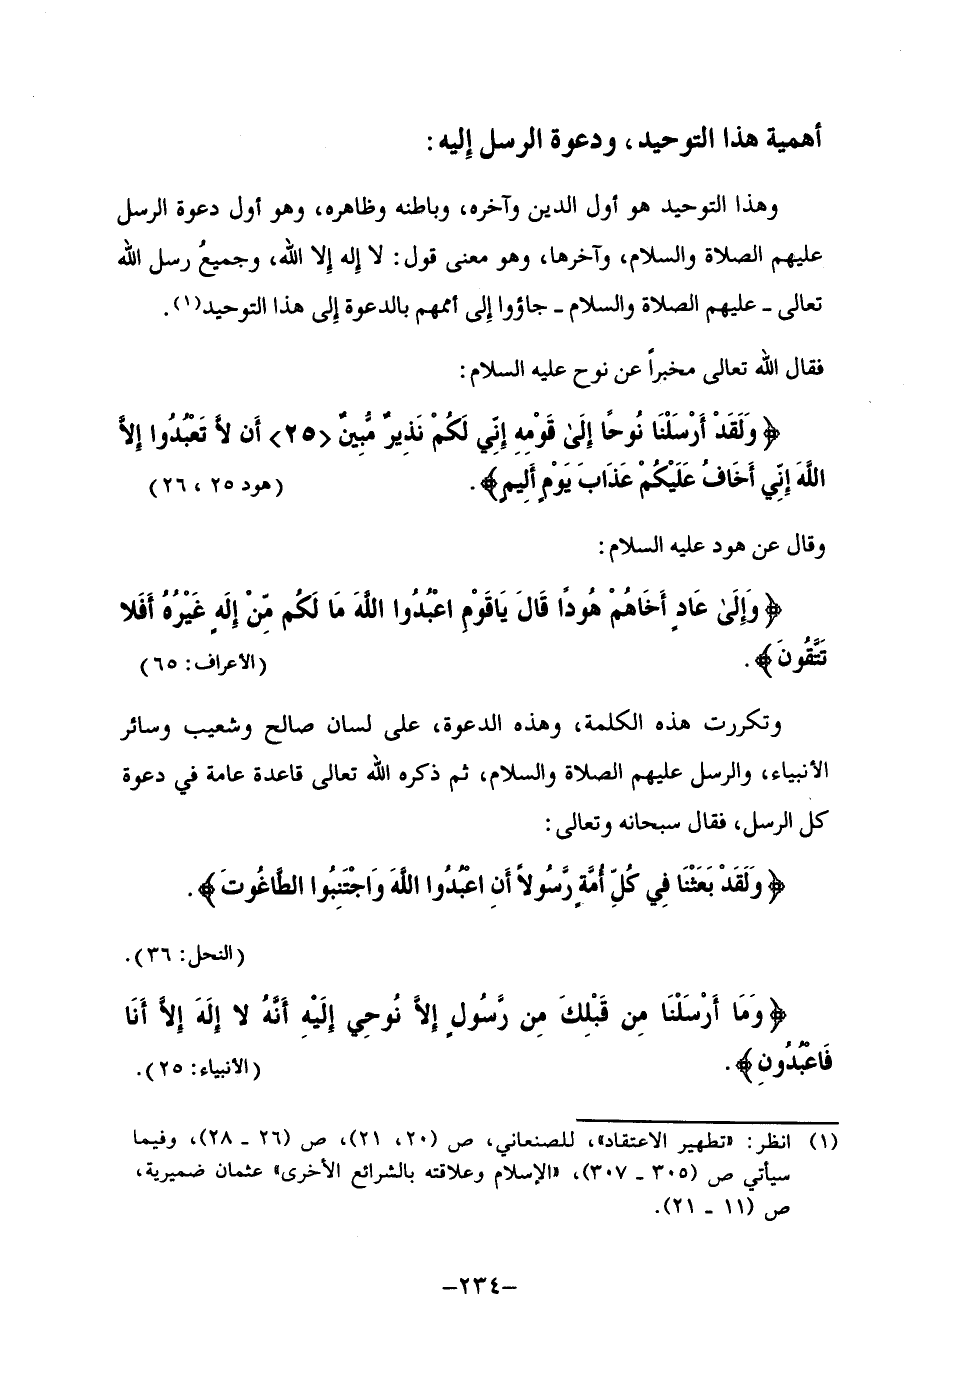 أهمية هذا التوحيد، ودعوة الرسل إليه:
وهذا التوحيد هو أول الدين وآخره، وباطنه وظاهره، وهو أول دعوة الرسل
عليهم الصلاة والسلام، وآخرها، وهو معنى قول: لا إله إلا الله، وجميعُ رسل الله
تعالى ـ عليهم الصلاة والسلام ـ جاؤوا إلى أممهم بالدعوة إلى هذا التوحيد(١).
فقال الله تعالى مخبراً عن نوح عليه السلام:
﴿وَلَقَدْ أَرْسَلْنَا نُوحًا إِلَىٰ قَوْمِهِ إِنِّي لَكُمْ نَذِيرٌ مُّبِينٌ <٢٥> أَن لاَّ تَعْبُدُوا إِلاَّ
اللَّهَ إِنِّي أَخَافُ عَلَيْكُمْ عَذَابَ يَوْمٍ أَلِيمٍ﴾. (هود ٢٥، ٢٦)
وقال عن هود عليه السلام:
﴿وَإِلَىٰ عَادٍ أَخَاهُمْ هُودًا قَالَ يَاقَوْمِ اعْبُدُوا اللَّهَ مَا لَكُم مِّنْ إِلَهٍ غَيْرُهُ أَفَلا
تَتَّقُونَ﴾. (الأعراف: ٦٥)
وتكررت هذه الكلمة، وهذه الدعوة، على لسان صالح وشعيب وسائر
الأنبياء، والرسل عليهم الصلاة والسلام، ثم ذكره الله تعالى قاعدة عامة في دعوة
كل الرسل، فقال سبحانه وتعالى:
﴿وَلَقَدْ بَعَثْنَا فِي كُلِّ أُمَّةٍ رَّسُولاً أَنِ اعْبُدُوا اللَّهَ وَاجْتَنِبُوا الطَّاغُوتَ﴾.
(النحل: ٣٦).
﴿وَمَا أَرْسَلْنَا مِن قَبْلِكَ مِن رَّسُولٍ إِلاَّ نُوحِي إِلَيْهِ أَنَّهُ لا إِلَهَ إِلاَّ أَنَا
فَاعْبُدُونِ﴾. (الأنبياء: ٢٥).
(١) انظر: «تطهير الاعتقاد»، للصنعاني، ص (٢٠، ٢١)، ص (٢٦ ـ ٢٨)، وفيما
سيأتي ص (٣٠٥ ـ ٣٠٧)، «الإسلام وعلاقته بالشرائع الأخرى» عثمان ضميرية،
ص (١١ ـ ٢١).
–٢٣٤–